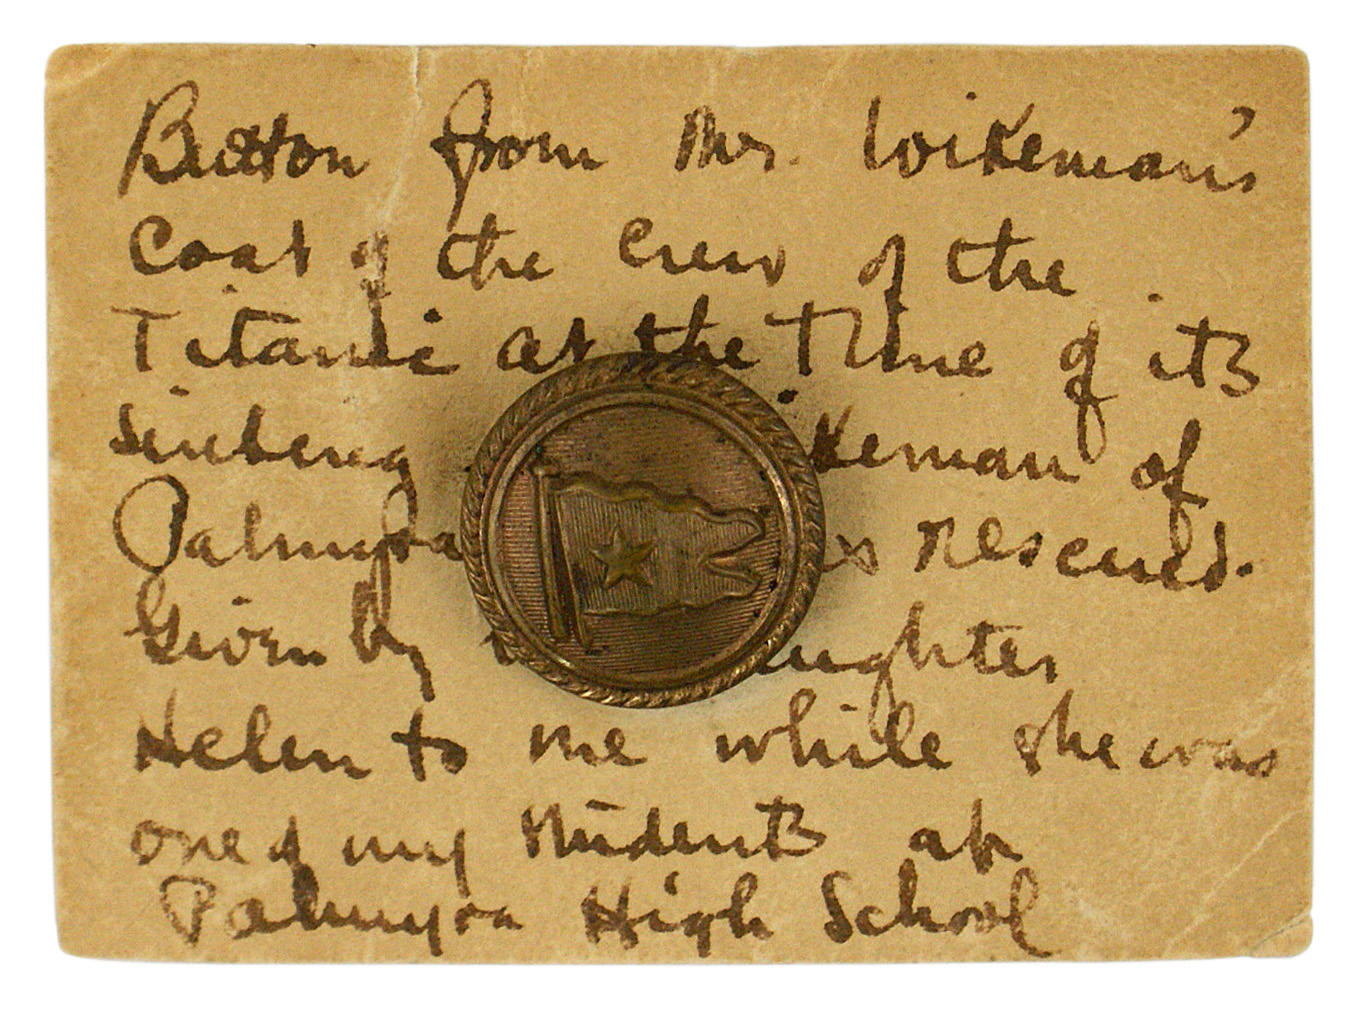 Button from Mr. Wikeman's
Coat of the Crew of the
Titanic at the Time of its
Sinking keman of
Palmyra rescued.
Given by ughter
Helen to me while she was
one of my students at
Palmyra High School